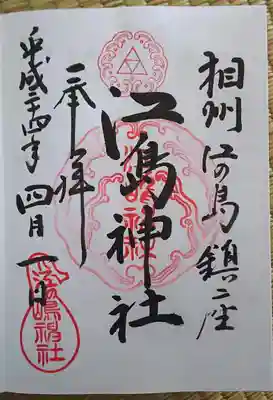 相州江の島鎮座
江島神社
奉拝
平成二十四年四月一日
江嶋神社